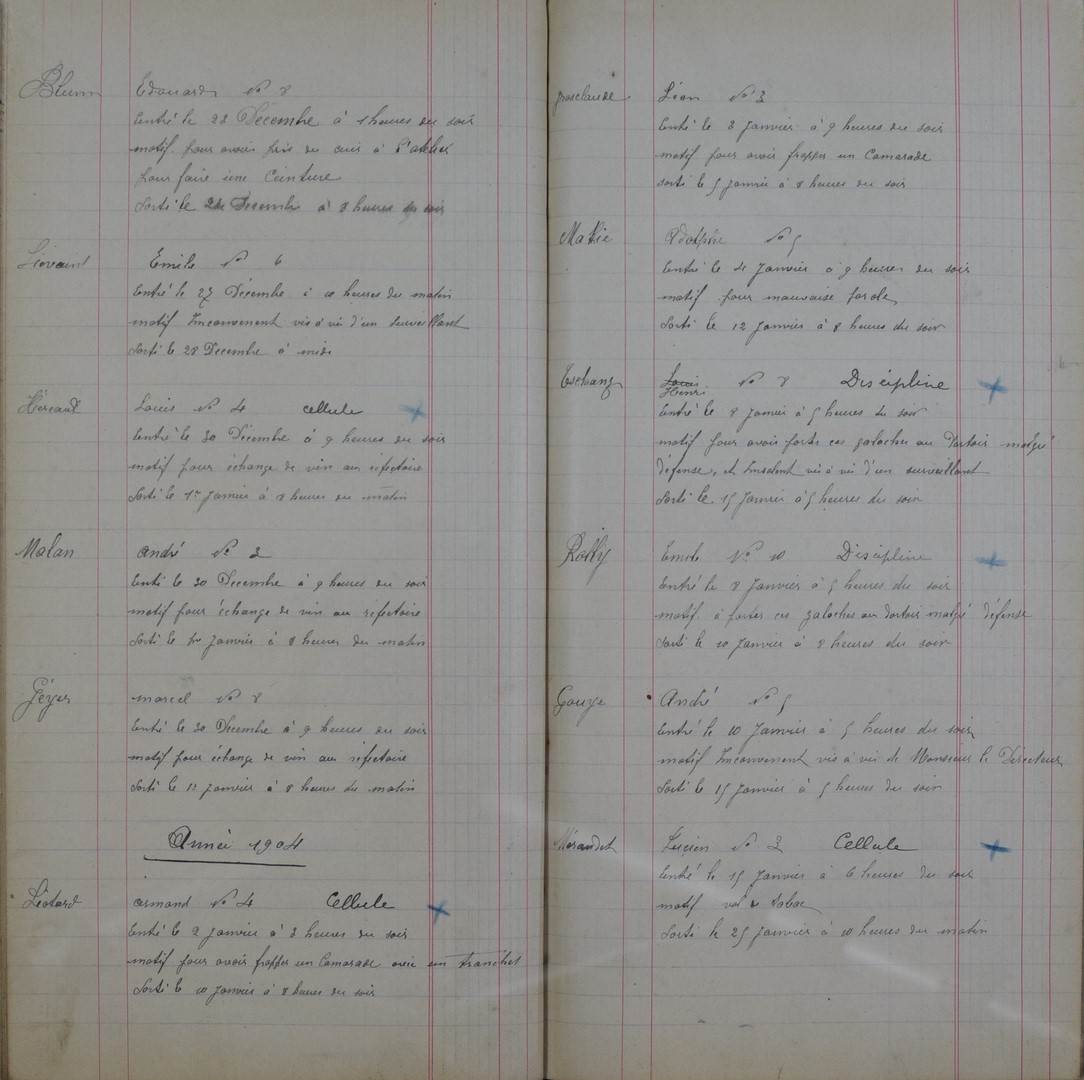 Blum Edouard No 8
Entré le 28 Decembre à 1 heures du soir
motif pour avoir pris du cuir à l'atelier
pour faire une Ceinture
Sorti le Decembre à 8 heures du soir
Emile No 6
Entré le 27 Décembre à 10 heures du matin
motif Inconvenent vis à vis d'un surveillant
Sorti le 28 Decembre à midi
Héreault Louis No 4 cellule
Entré le 30 Décembre à 9 heures du soir
motif pour échange de vin au réfectoire
Sorti le 1er Janvier à 8 heures du matin
Malan André No 2
Entré le 30 Decembre à 9 heures du soir
motif pour échange de vin au réfectoire
Sorti le 1er Janvier à 8 heures du matin
Géyer marcel No 8
Entré le 30 Décembre à 9 heures du soir
motif pour échange de vin au réfectoire
Sorti le 1er janvier à 8 heures du matin
Année 1904
Léotard armand No 4 Cellule
Entré le 2 janvier à 2 heures du soir
motif pour avoir frapper un Camarade avec un tranchet
Sorti le 10 Janvier à 8 heures du soir
Grosclaude Léon No 3
Entré le 3 Janvier à 9 heures du soir
motif pour avoir frapper un Camarade
Sorti le 5 Janvier à 8 heures du soir
Adolphe No 5
Entré le 4 Janvier à 9 heures du soir
motif pour mauvaise parole
Sorti le 12 Janvier à 8 heures du soir
Eschang Louis No 8 Discipline
Henri
Entré le 8 janvier à 5 heures du soir
motif pour avoir porté ces galoches au Dortoir malgré
défense, et Insolent vis à vis d'un surveillant
Sorti le 15 Janvier à 5 heures du soir
Emile No 10 Discipline
Entré le 8 Janvier à 5 heures du soir
motif à porter ces galoches au Dortoir malgré défense
Sorti le 10 Janvier à 8 heures du soir
Gouge André No 5
Entré le 10 Janvier à 5 heures du soir
motif Inconvenent vis à vis de Monsieur le Directeur
Sorti le 15 Janvier à 5 heures du soir
Mérandet Lucien No 2 Cellule
Entré le 15 Janvier à 6 heures du soir
motif vol de tabac
Sorti le 25 janvier à 10 heures du matin